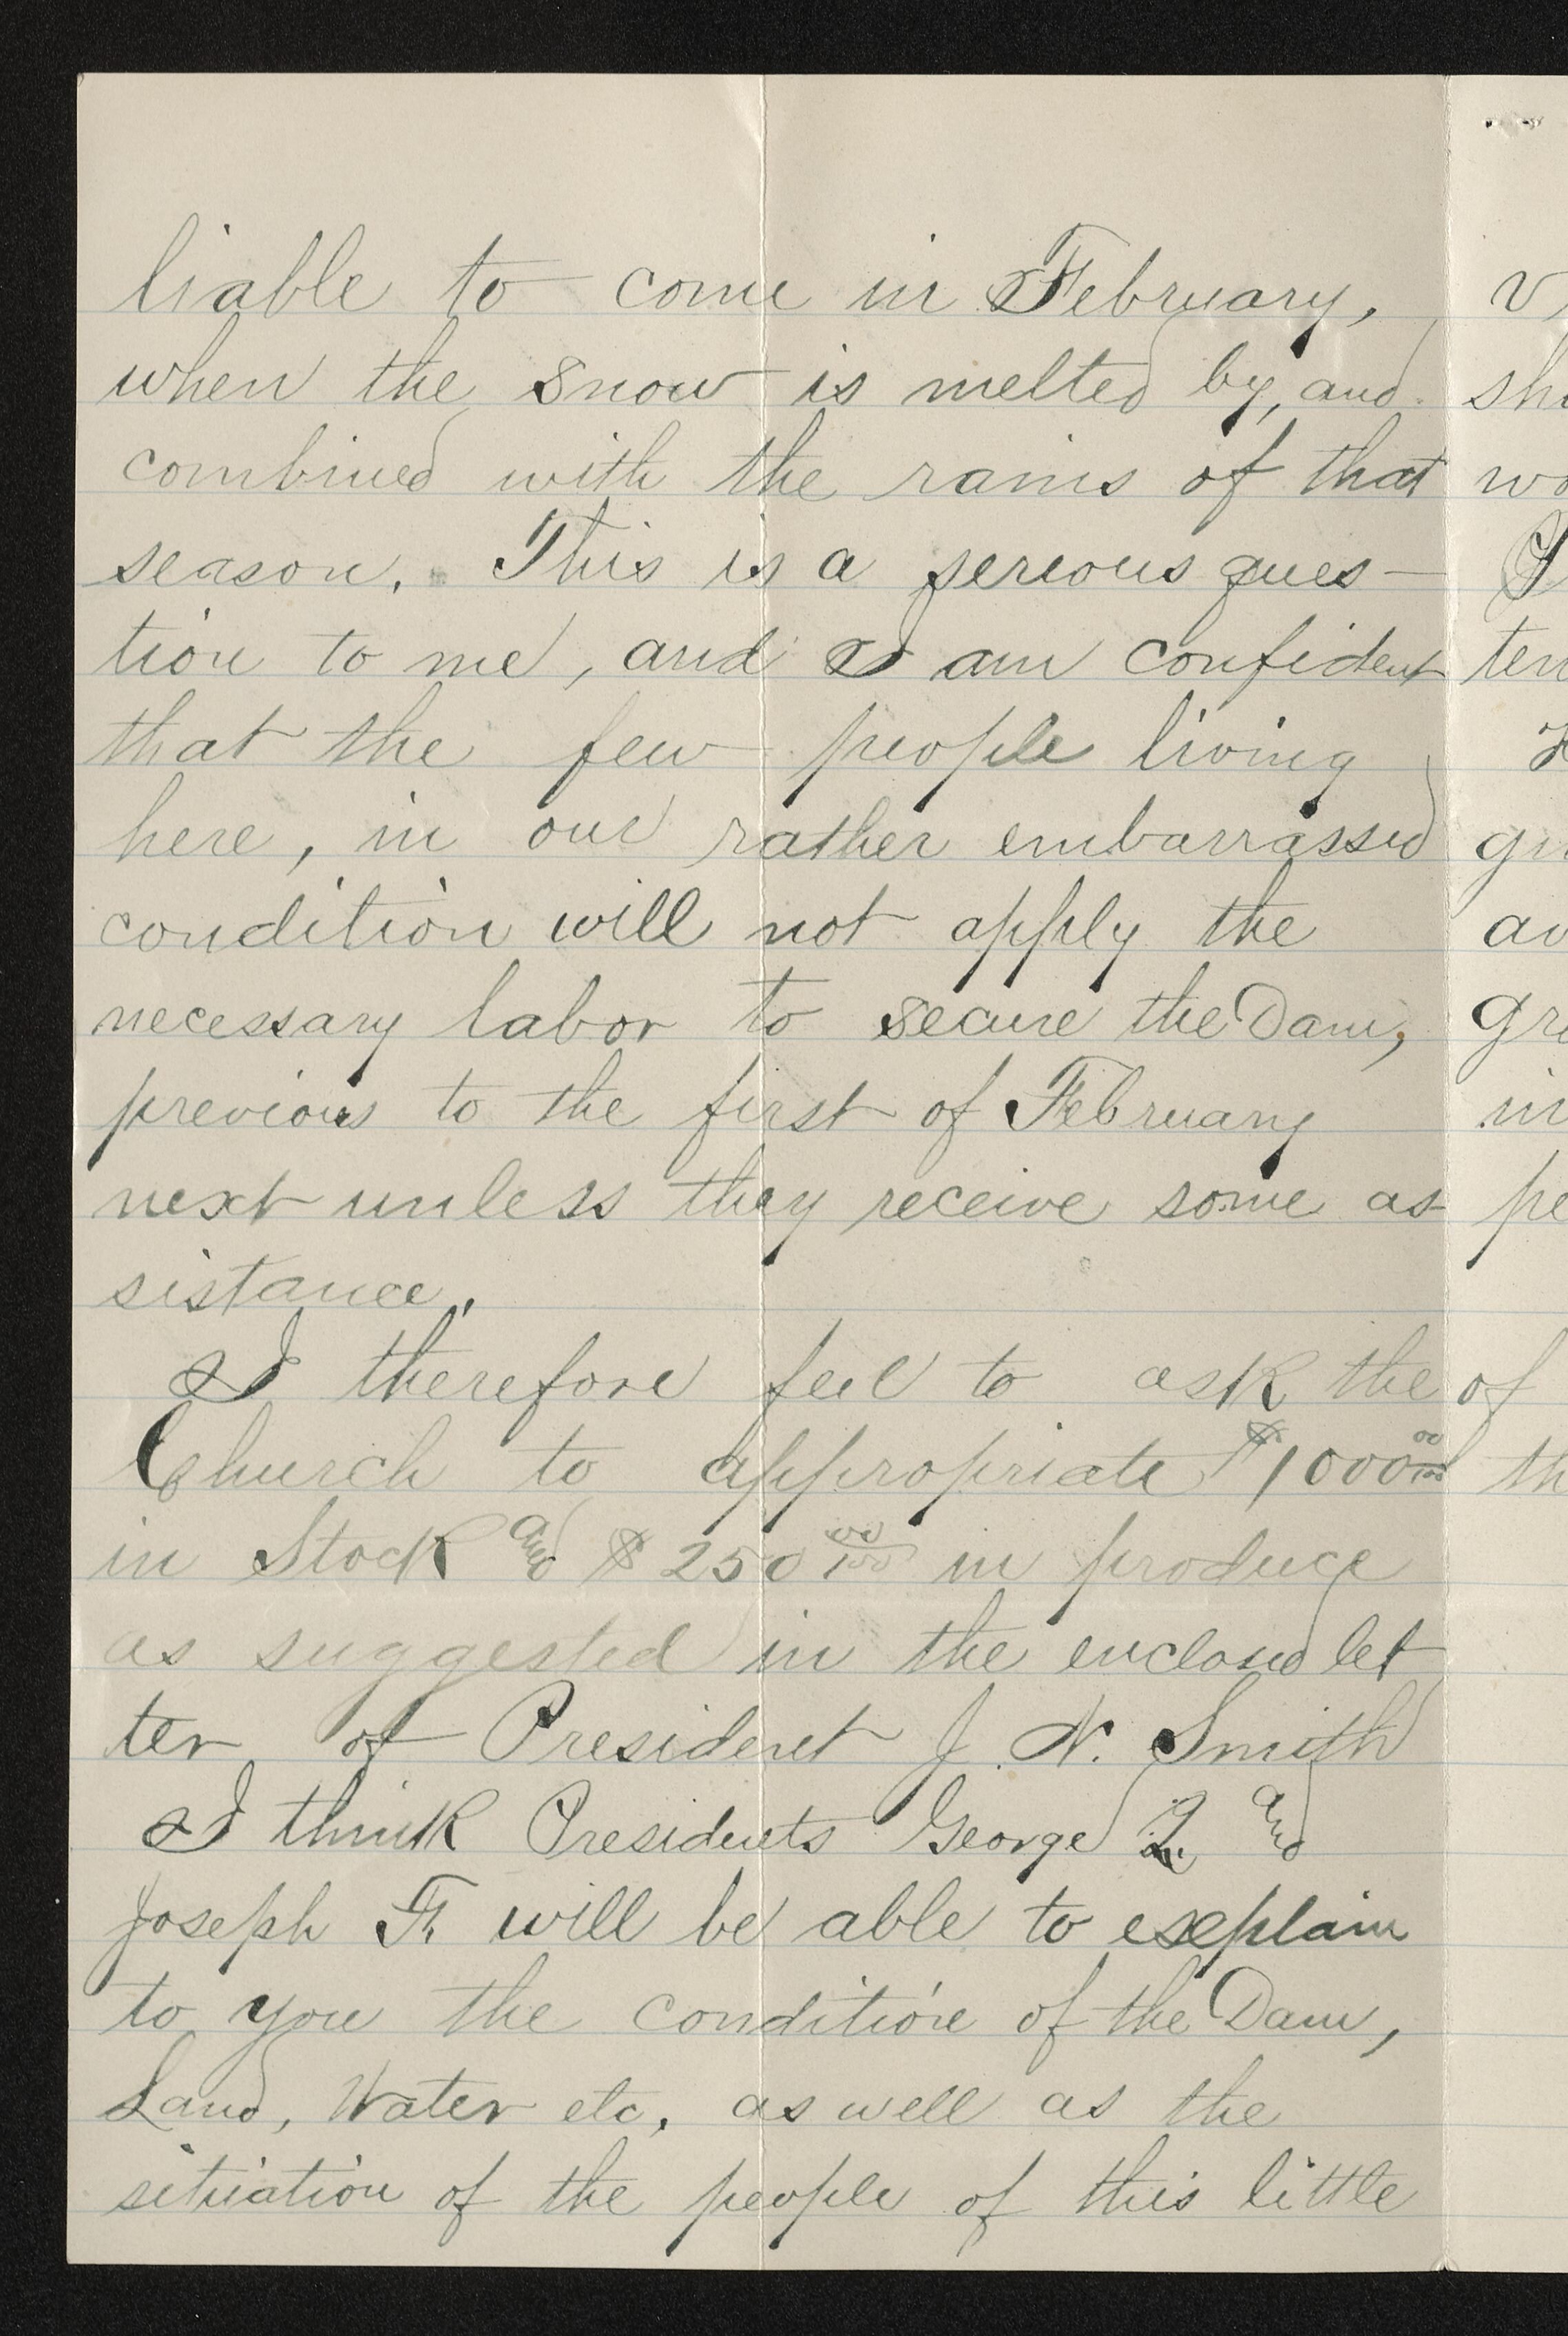 liable to come in February,
when the snow is melted by, and
combined with the rains of that
season. This is a serious ques-
tion to me, and I am confident
that the few people living
here, in our rather embarrassed
condition will not apply the
necessary labor to secure the Dam,
previous to the first of February
next unless they receive some as
sistance.
I therefore feel to ask the
Church to appropriate $1000 00/100
in Stock and $250 00/100 in produce
as suggested in the enclosed let
ter of President J. N. Smith
I think Presidents George Q. and
Joseph F. will be able to explain
to you the condition of the Dam,
Land, Water etc. as well as the
situation of the people of this little
of